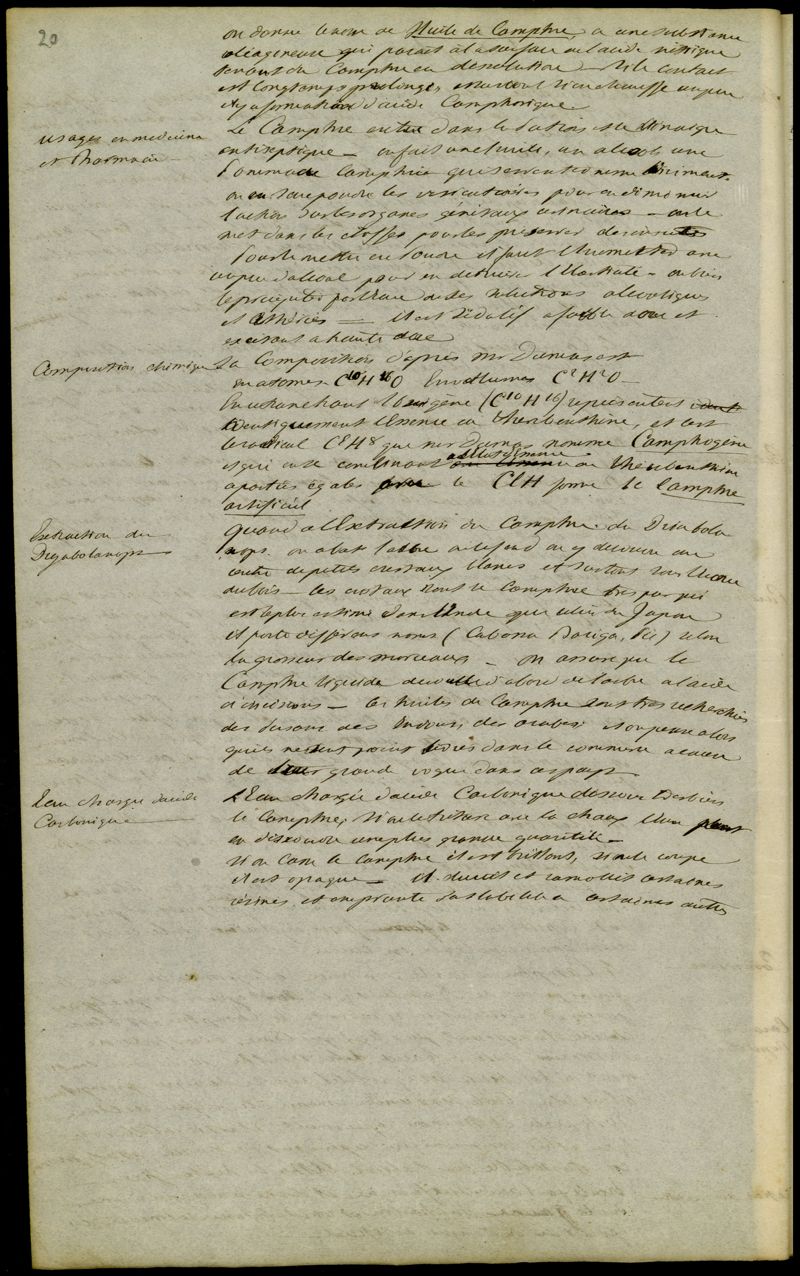 20
on donne le nom de Huile de Camphre, a une substance
oléagineuse qui parait à la surface de l'acide nitrique
tenant du Camphre en dissolution — si le contact
est longtemps prolongé, et surtout si on chauffe un peu
il y a formation d'acide Camphorique
usages en medecine
et Pharmacie
Le Camphre entre dans le vinaigre
antiseptique — on fait une huile, un alcool, une
Pommade Camphrée qui servent comme liniment
on en saupoudre les vesicatoires pour en diminuer
l'action sur les organes génitaux urinaires — on le
met dans les étoffes pour les préserver des insectes
Pour le mettre en Poudre il faut l'humecter d'un
peu d'alcool pour en detruire l'Elasticité — ou bien
le précipiter par l'Eau de des solutions alcooliques
et Ethérées — il est sédatif a faible dose et
excitant a haute dose
Composition chimique
La Composition d'après mr Dumas est
en atomes C¹⁰H¹⁶O En volumes C²H²O —
En retranchant l'oxigène (C¹⁰H¹⁶) represente
identiquement l'Essence de therebenthine, et c'est
le radical C⁵H⁸ que mr Dumas nomme Camphogène
et qui en se combinant de therebenthine
a parties égales le ClH forme le Camphre
artificiel
Extraction du
Dryabolanops
quand a l'Extraction du Camphre du Driabola
nops. on abat l'arbre on le fend on y decouvre au
centre de petits cristaux blancs et surtout sous l'Ecorce
du bois — les cristaux sont le Camphre très pur qui
est le plus estimé dans l'Inde que celui du Japon
il porte différens noms ( Cabessa Bariga, Pié) selon
la grosseur des morceaux — on assure que le
Camphre liquide decoule d'abord de l'arbre a l'aide
d'incisions — les huiles de Camphre sont tres recherchées
des Persans des Indous, des arabes et on pense alors
qu'ils ne sont point livrés dans le commerce a cause
de leur grande vogue dans ces pays
Eau chargée d'acide
Carbonique
L'Eau chargée d'acide Carbonique dissout très bien
le Camphre, si on le triture avec la chaux l'Eau peut
en dissoudre une plus grande quantité —
si on casse le camphre il est brillant, si on le coupe
il est opaque — il durcit et ramollit certaines
résines, et emprunte certaines autres